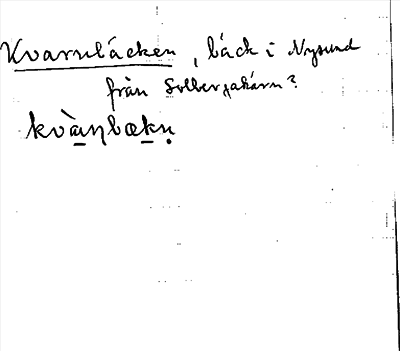 Kvarnbäcken, bäck i Nysund
från Solbergakärn?
kvà̱ŋbæ̱kṇ